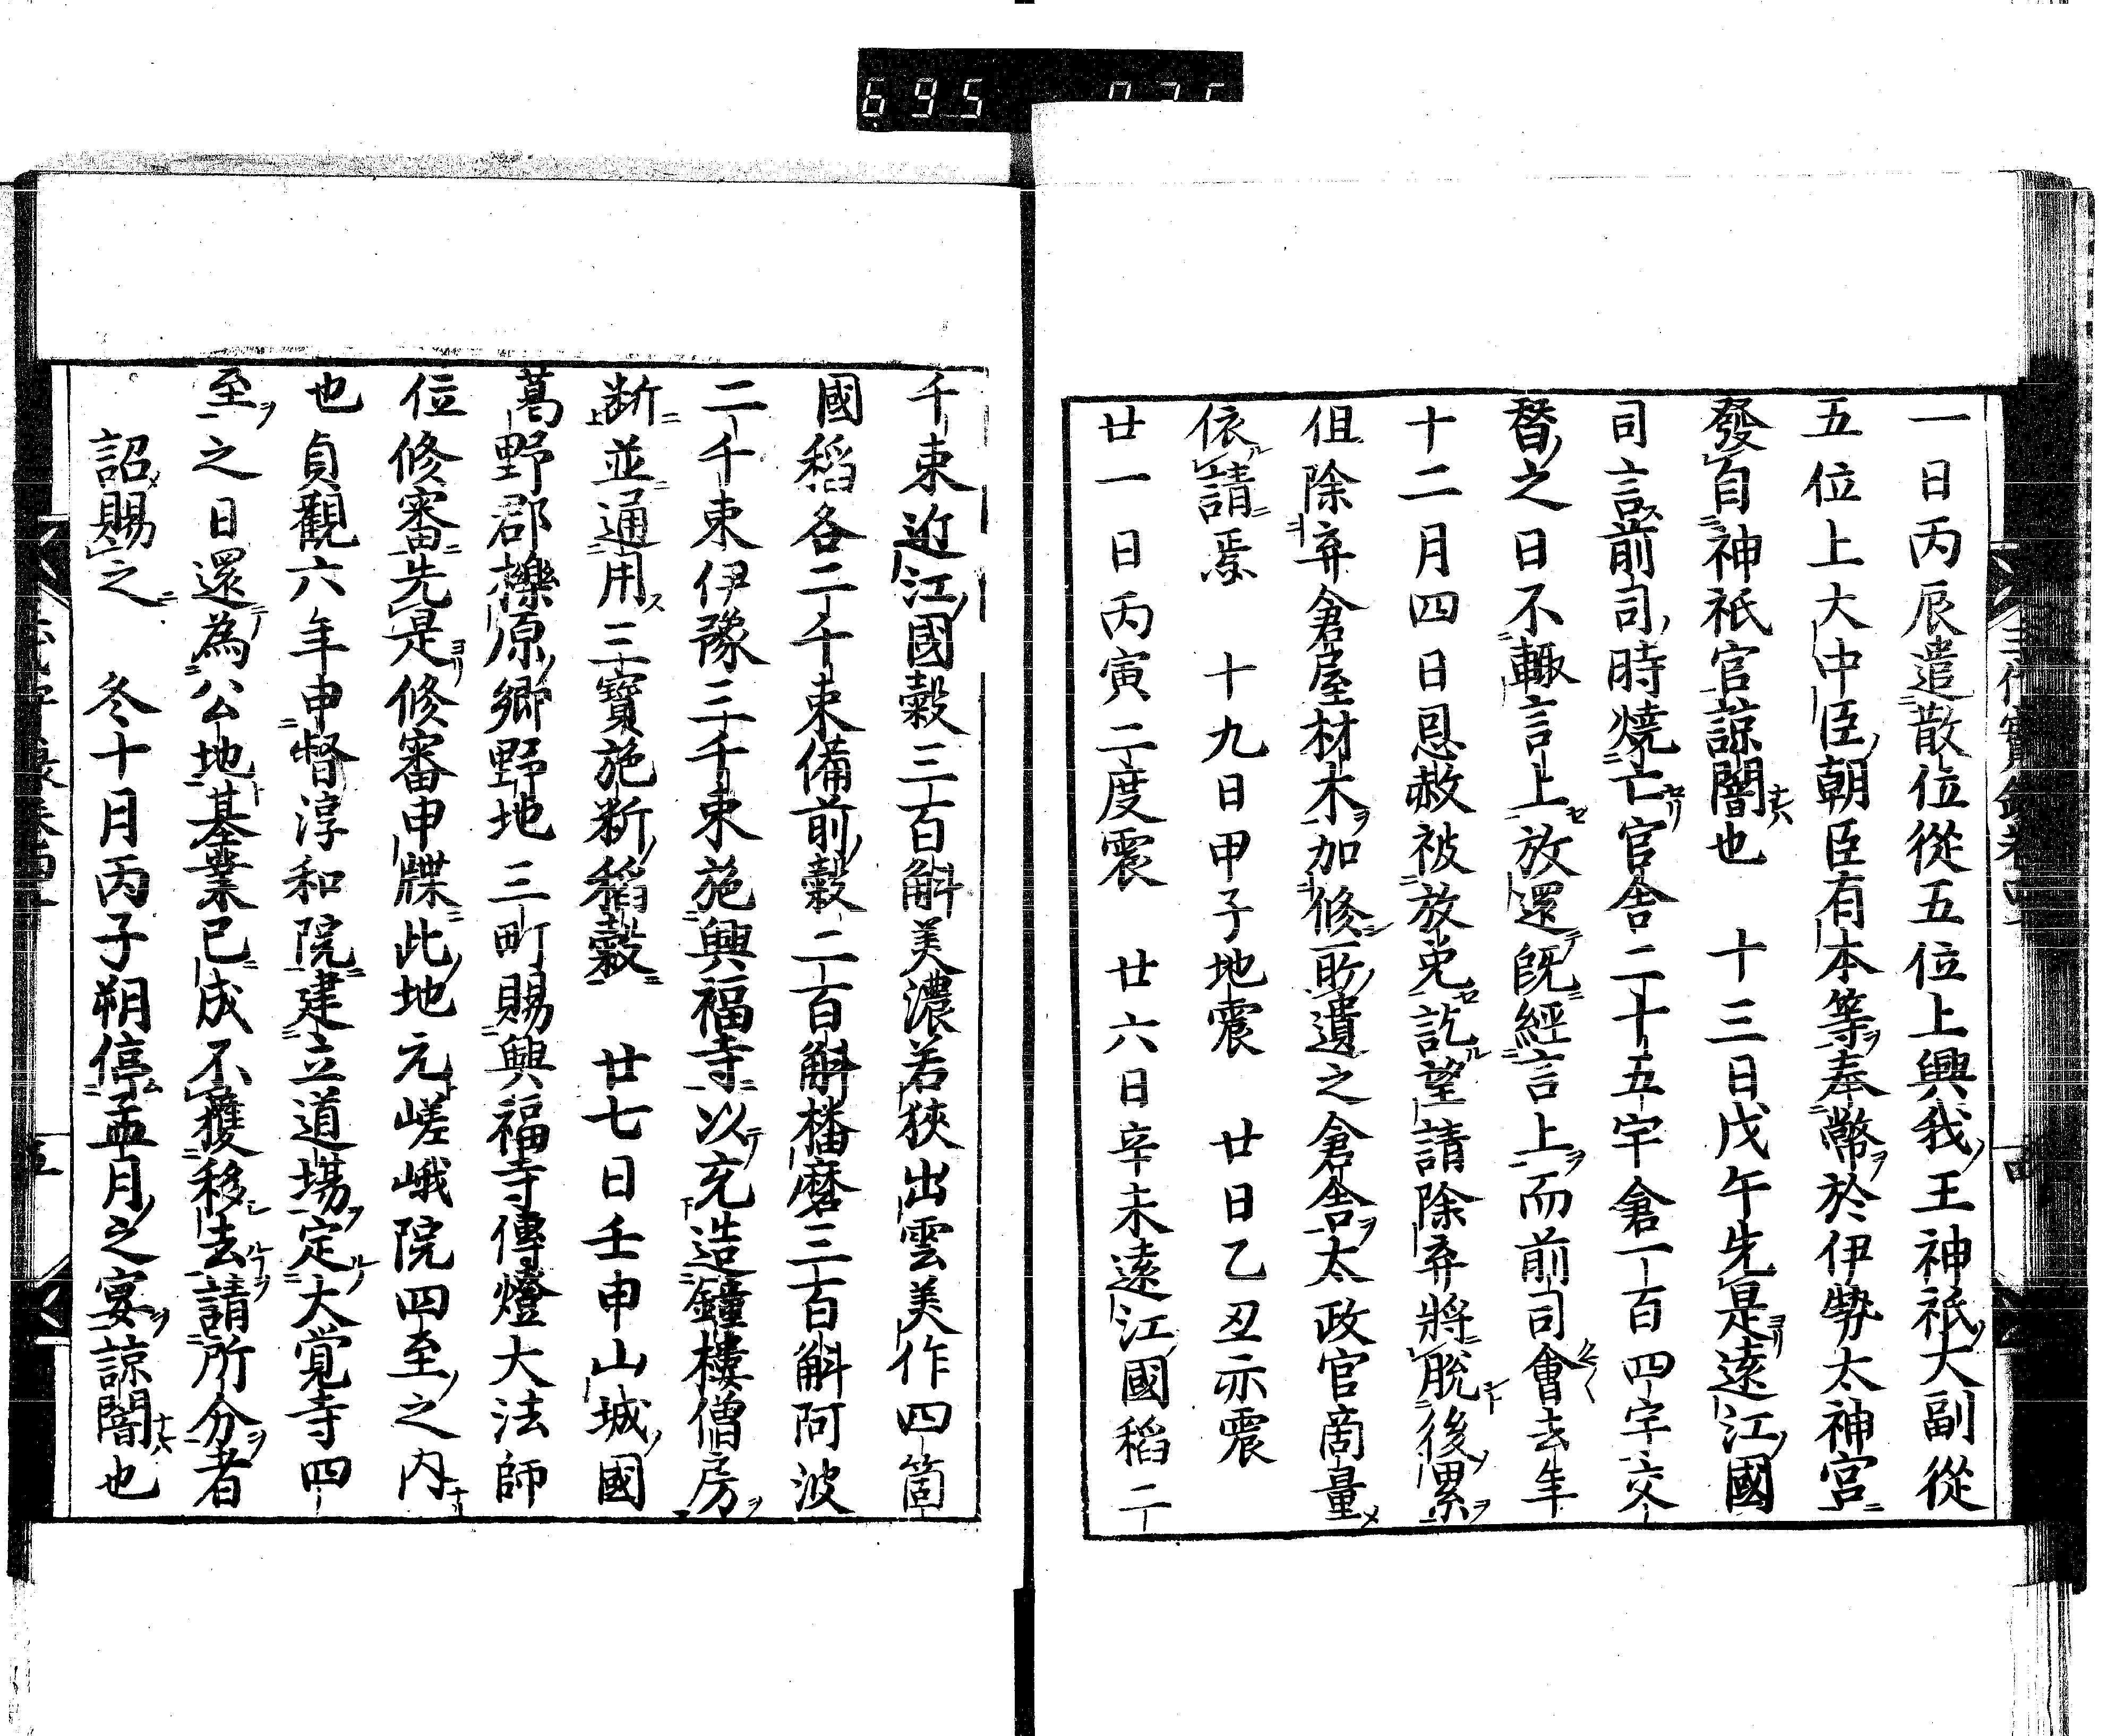 一日丙辰遣散位從五位上興我王神祇大副從
五位上大中臣朝臣有本等奉幣於伊勢太神宮
發自神祇官諒闇也　十三日戊午先是遠江國
司言前司時燒亡官舍二十五宇倉一百四宇交
替之日不輙言上放還既經言上而前司會去年
十二月四日恩赦被放免訖望請除弃將脫後累
但除弃倉屋材木加修所遺之倉舍太政官商量
依請焉　十九日甲子地震　廿日乙丑亦震
廿一日丙寅二度震　廿六日辛未遠江國稻二
千束近江國穀三百斛美濃若狹出雲美作四箇
國稻各二千束備前穀二百斛播磨三百斛阿波
二千束伊豫三千束施興福寺以充造鐘樓僧房
断並通用三寶施断稻穀　廿七日壬申山城國
葛野郡櫟原鄉野地三町賜興福寺傳燈大法師
位修審先是修審申牒此地元嵯峨院四至之内
也貞觀六年申督淳和院建立道場定大覚寺四
至之日還為公地基業已成不獲移去請所分者
詔賜之　冬十月丙子朔停孟月之宴諒闇也
695